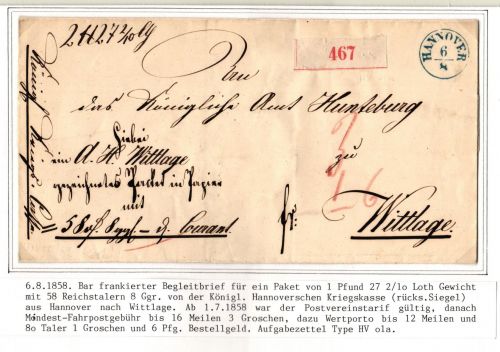 467
HANNOVER
6
8
An
das Königliche Amt Hunteburg
Hiebei
zu
ein A. H. Wittlage
gezeichnetes Packet in Papier
mit
fr.
Wittlage.
3
1-6
6.8.1858. Bar frankierter Begleitbrief für ein Paket von 1 Pfund 27 2/lo Loth Gewicht
mit 58 Reichstalern 8 Ggr. von der Königl. Hannoverschen Kriegskasse (rücks.Siegel)
aus Hannover nach Wittlage. Ab 1.7.1858 war der Postvereinstarif gültig, danach
Mindest-Fahrpostgebühr bis 16 Meilen 3 Groschen, dazu Wertporto bis 12 Meilen und
8o Taler 1 Groschen und 6 Pfg. Bestellgeld. Aufgabezettel Type HV ola.